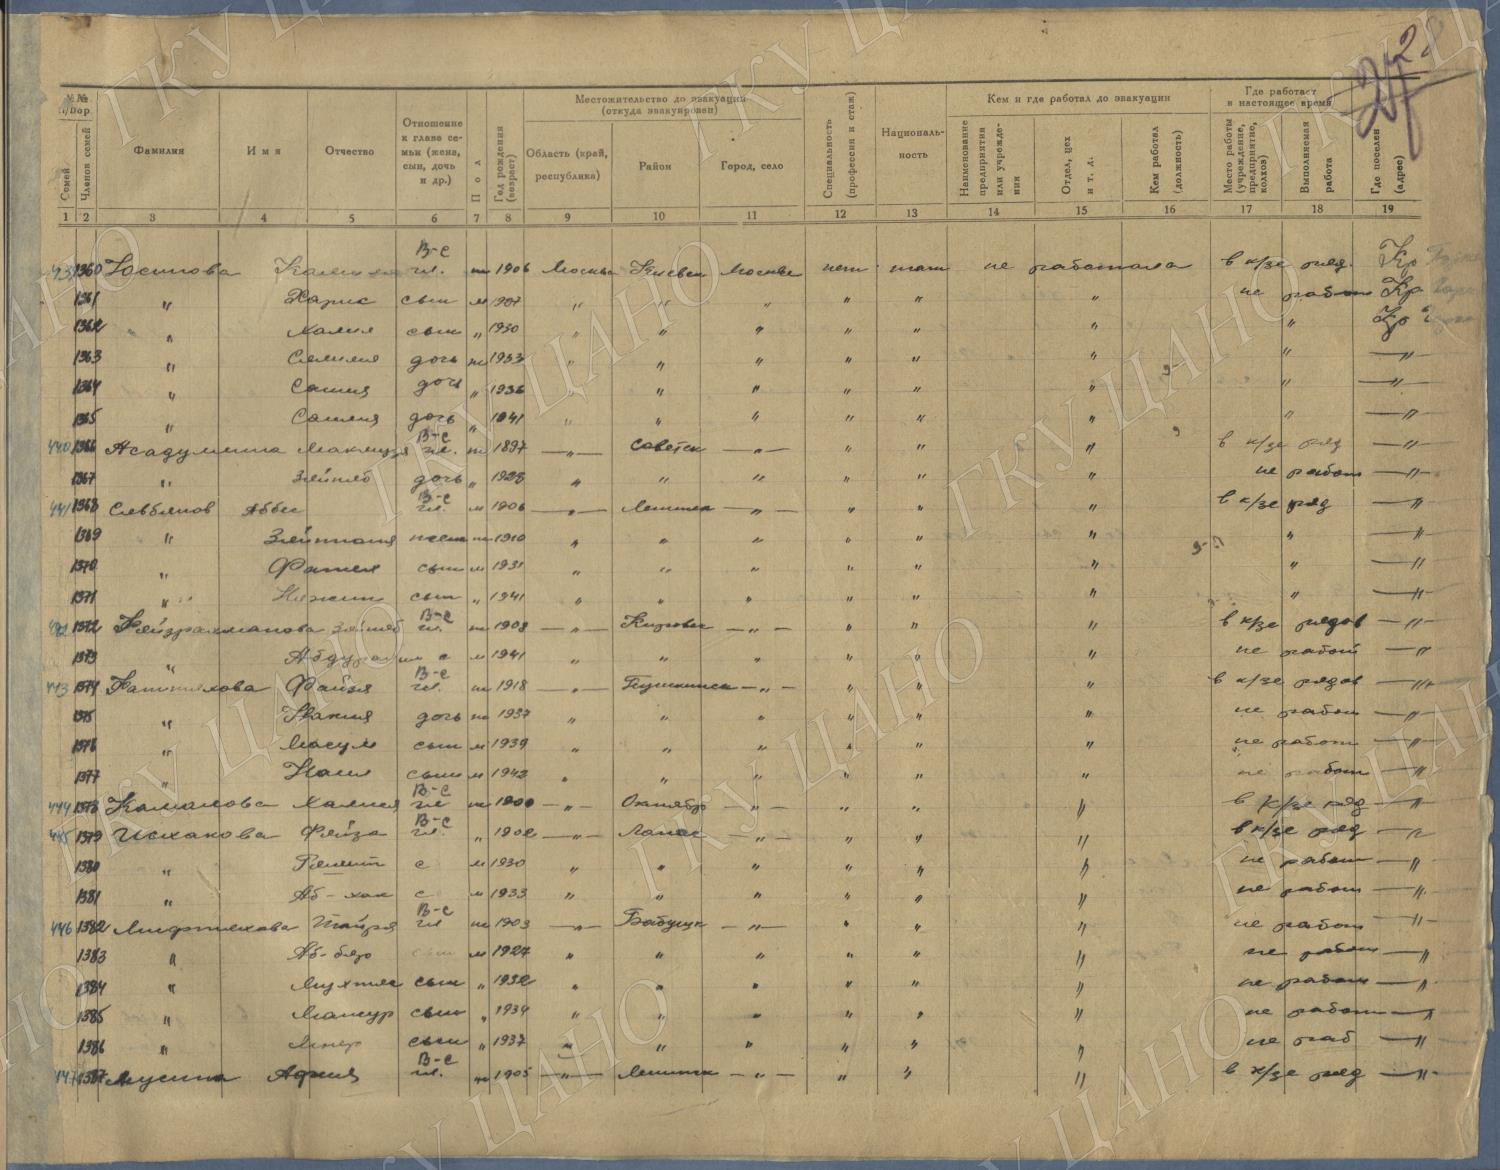 28
№№ п/пор.
Семей
Членов семей
Фамилия
Имя
Отчество
Отношение к главе семьи (жена, сын, дочь и др.)
Пол
Год рождения (возраст)
Местожительство до эвакуации (откуда эвакуирован)
Область (край, республика)
Район
Город, село
Специальность (профессия и стаж)
Националь-ность
Кем и где работал до эвакуации
Наименование предприятия или учрежде-ния
Отдел, цех и т. д.
Кем работал (должность)
Где работает в настоящее время
Место работы (учреждение, предприятие, колхоз)
Выполняемая работа
Где поселен (адрес)
1 2 3 4 5 6 7 8 9 10 11 12 13 14 15 16 17 18 19
В-с
439 1360 Юсипова гл. ж 1906 Москва Киевск Москва нет тат не работала в к/зе ряд. Кр
1361 " Харис сын м 1927 " " " " " " не работ Кр
1362 " Халил сын " 1930 " " " " " " " Кр
1363 " дочь ж 1933 " " " " " " " —"—
1364 " дочь " 1936 " " " " " " —"—
1365 " дочь " 1941 " " " " " " " —"—
В-с
440 1366 Асадулина гл. ж 1897 —"— Советск —"— " " " в к/зе ряд —"—
1367 " Зейнеб дочь " 1928 " " " " " " не работ —"—
В-с
441 1368 Аббяс гл. м 1906 —"— Ленинск —"— " " " в к/зе ряд —"—
1369 " жена ж 1910 " " " " " " " —"—
1370 " Фатех сын м 1931 " " " " " " " —"—
1371 " сын " 1941 " " " " " " " —"—
В-с
442 1372 Фейзрахманова Зейнеб гл. ж 1908 —"— Кировск —"— " " " в к/зе рядов —"—
1373 " Абдурахим с м 1941 " " " " " " не работ —"—
В-с
443 1374 гл. ж 1918 —"— Пушкинск —"— " " " в к/зе рядов —"—
1375 " дочь ж 1937 " " " " " " не работ —"—
1376 " Масум сын м 1939 " " " " " " не работ —"—
1377 " Наил сын м 1942 " " " " " " не работ —"—
В-с
444 1378 Камалова Халися гл ж 1900 —"— Октябр —"— " " " в к/зе ряд —"—
В-с
445 1379 Исхакова Фейза гл. " 1902 —"— —"— " " " в к/зе ряд —"—
1380 " с м 1930 " " " " " " не работ —"—
1381 " Аб-хак с м 1933 " " " " " " не работ —"—
В-с
446 1382 Мифтяхова Тайря гл ж 1903 —"— Бабушк —"— " " " не работ —"—
1383 " сын м 1927 " " " " " " не работ —"—
1384 " сын " 1932 " " " " " " не работ —"—
1385 " Мансур сын " 1934 " " " " " " не работ —"—
1386 " сын " 1937 " " " " " " не раб —"—
В-с
447 1387 Мусина гл. ж 1905 —"— Ленинск —"— " " " в к/зе ряд —"—
ГКУ ЦАНО